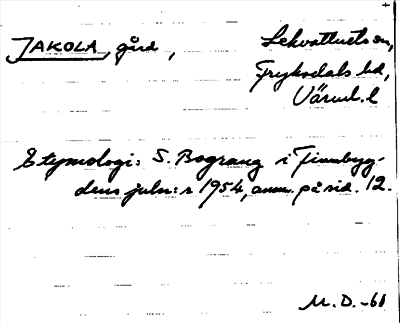 JAKOLA, gård, Lekvattnets sn,
Fryksdals hd,
Värml. l
Etymologi: S. Bograng i Finnbyg-
dens juln:r 1954, anm. på sid. 12.
M. D. -60